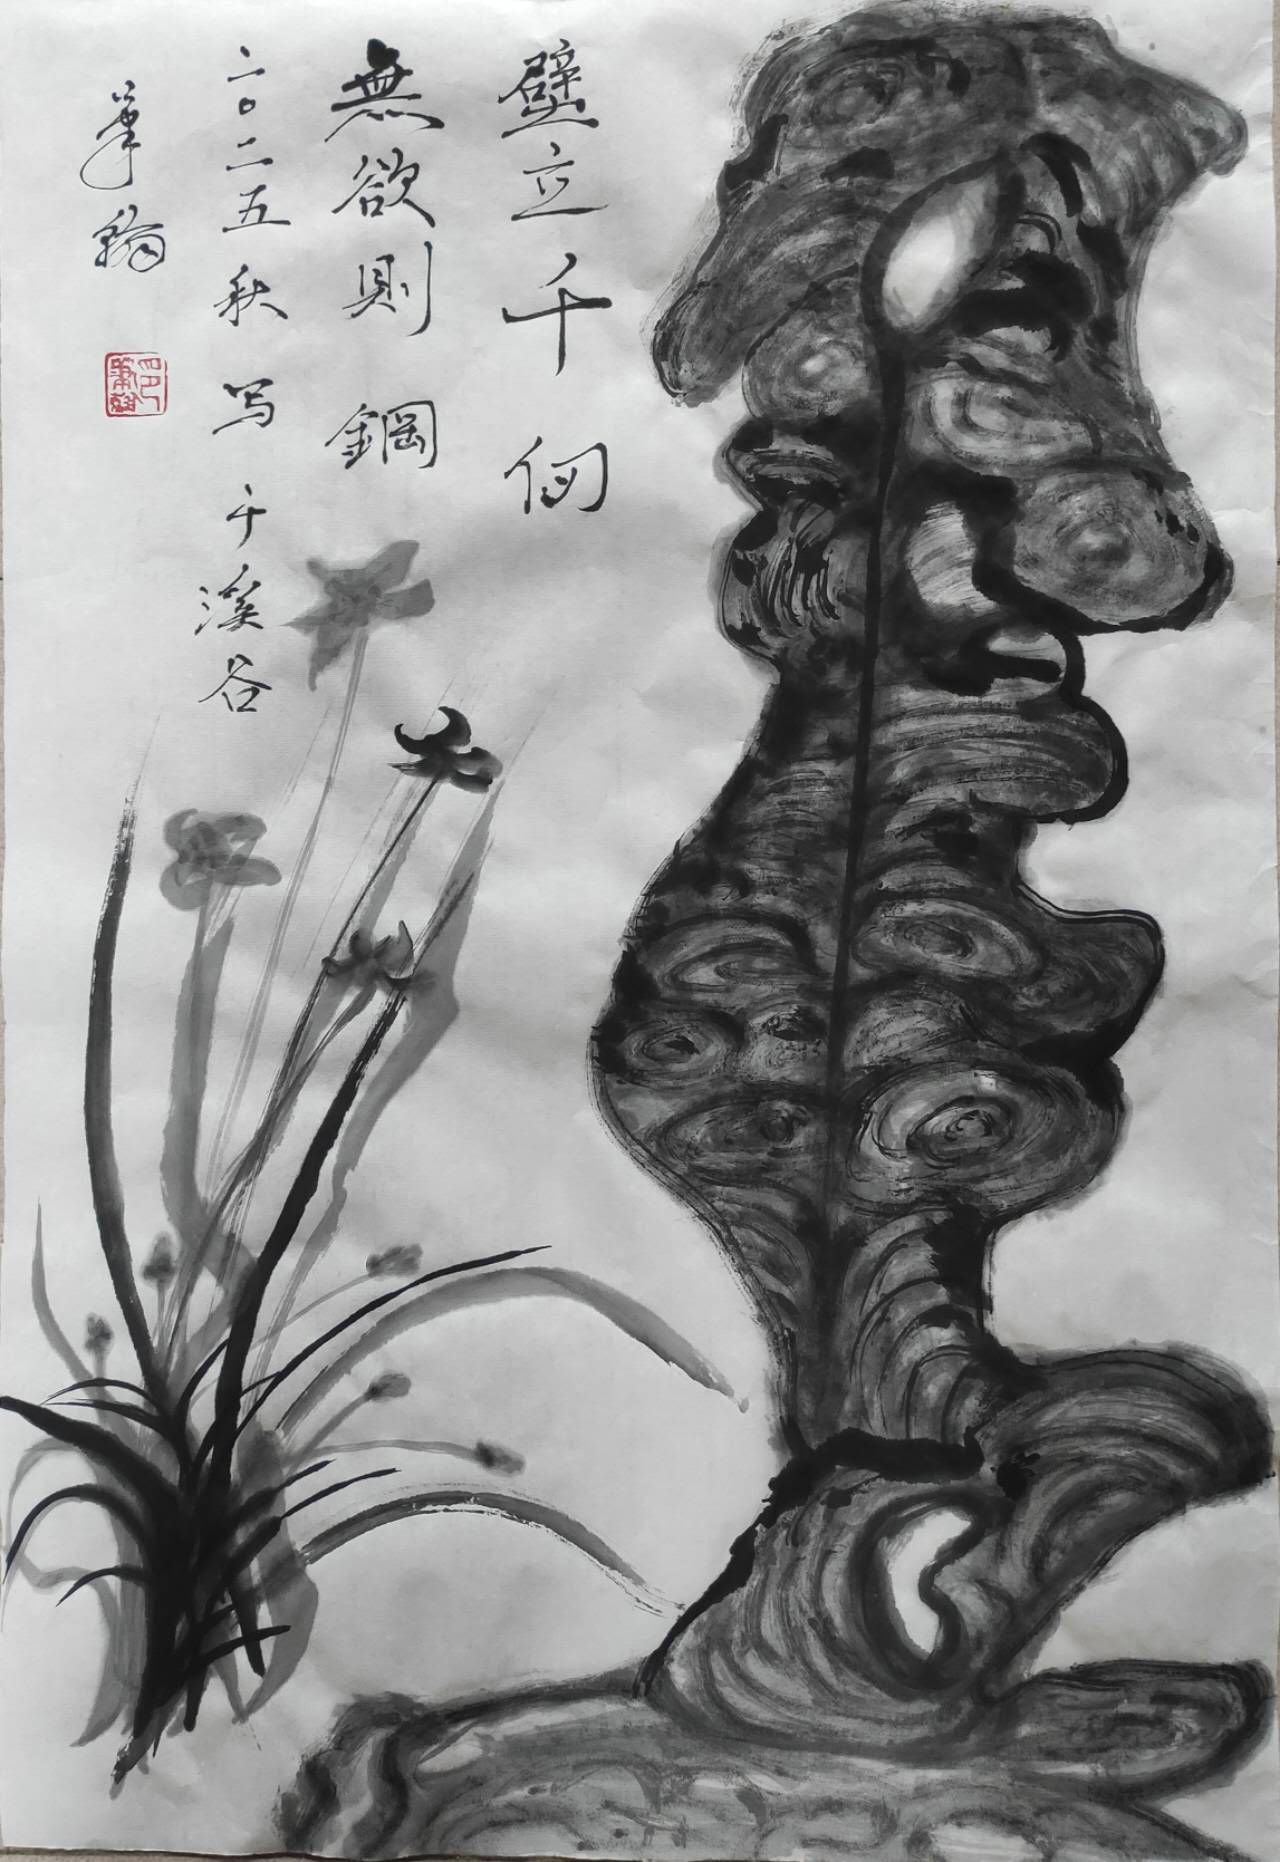 壁立千仞
無欲則鋼
二〇二五秋写于溪谷
翰